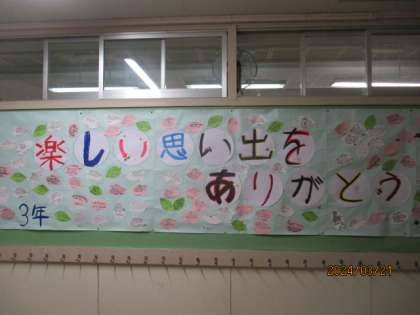 楽しい思い出を
ありがとう
3年
2024/03/21